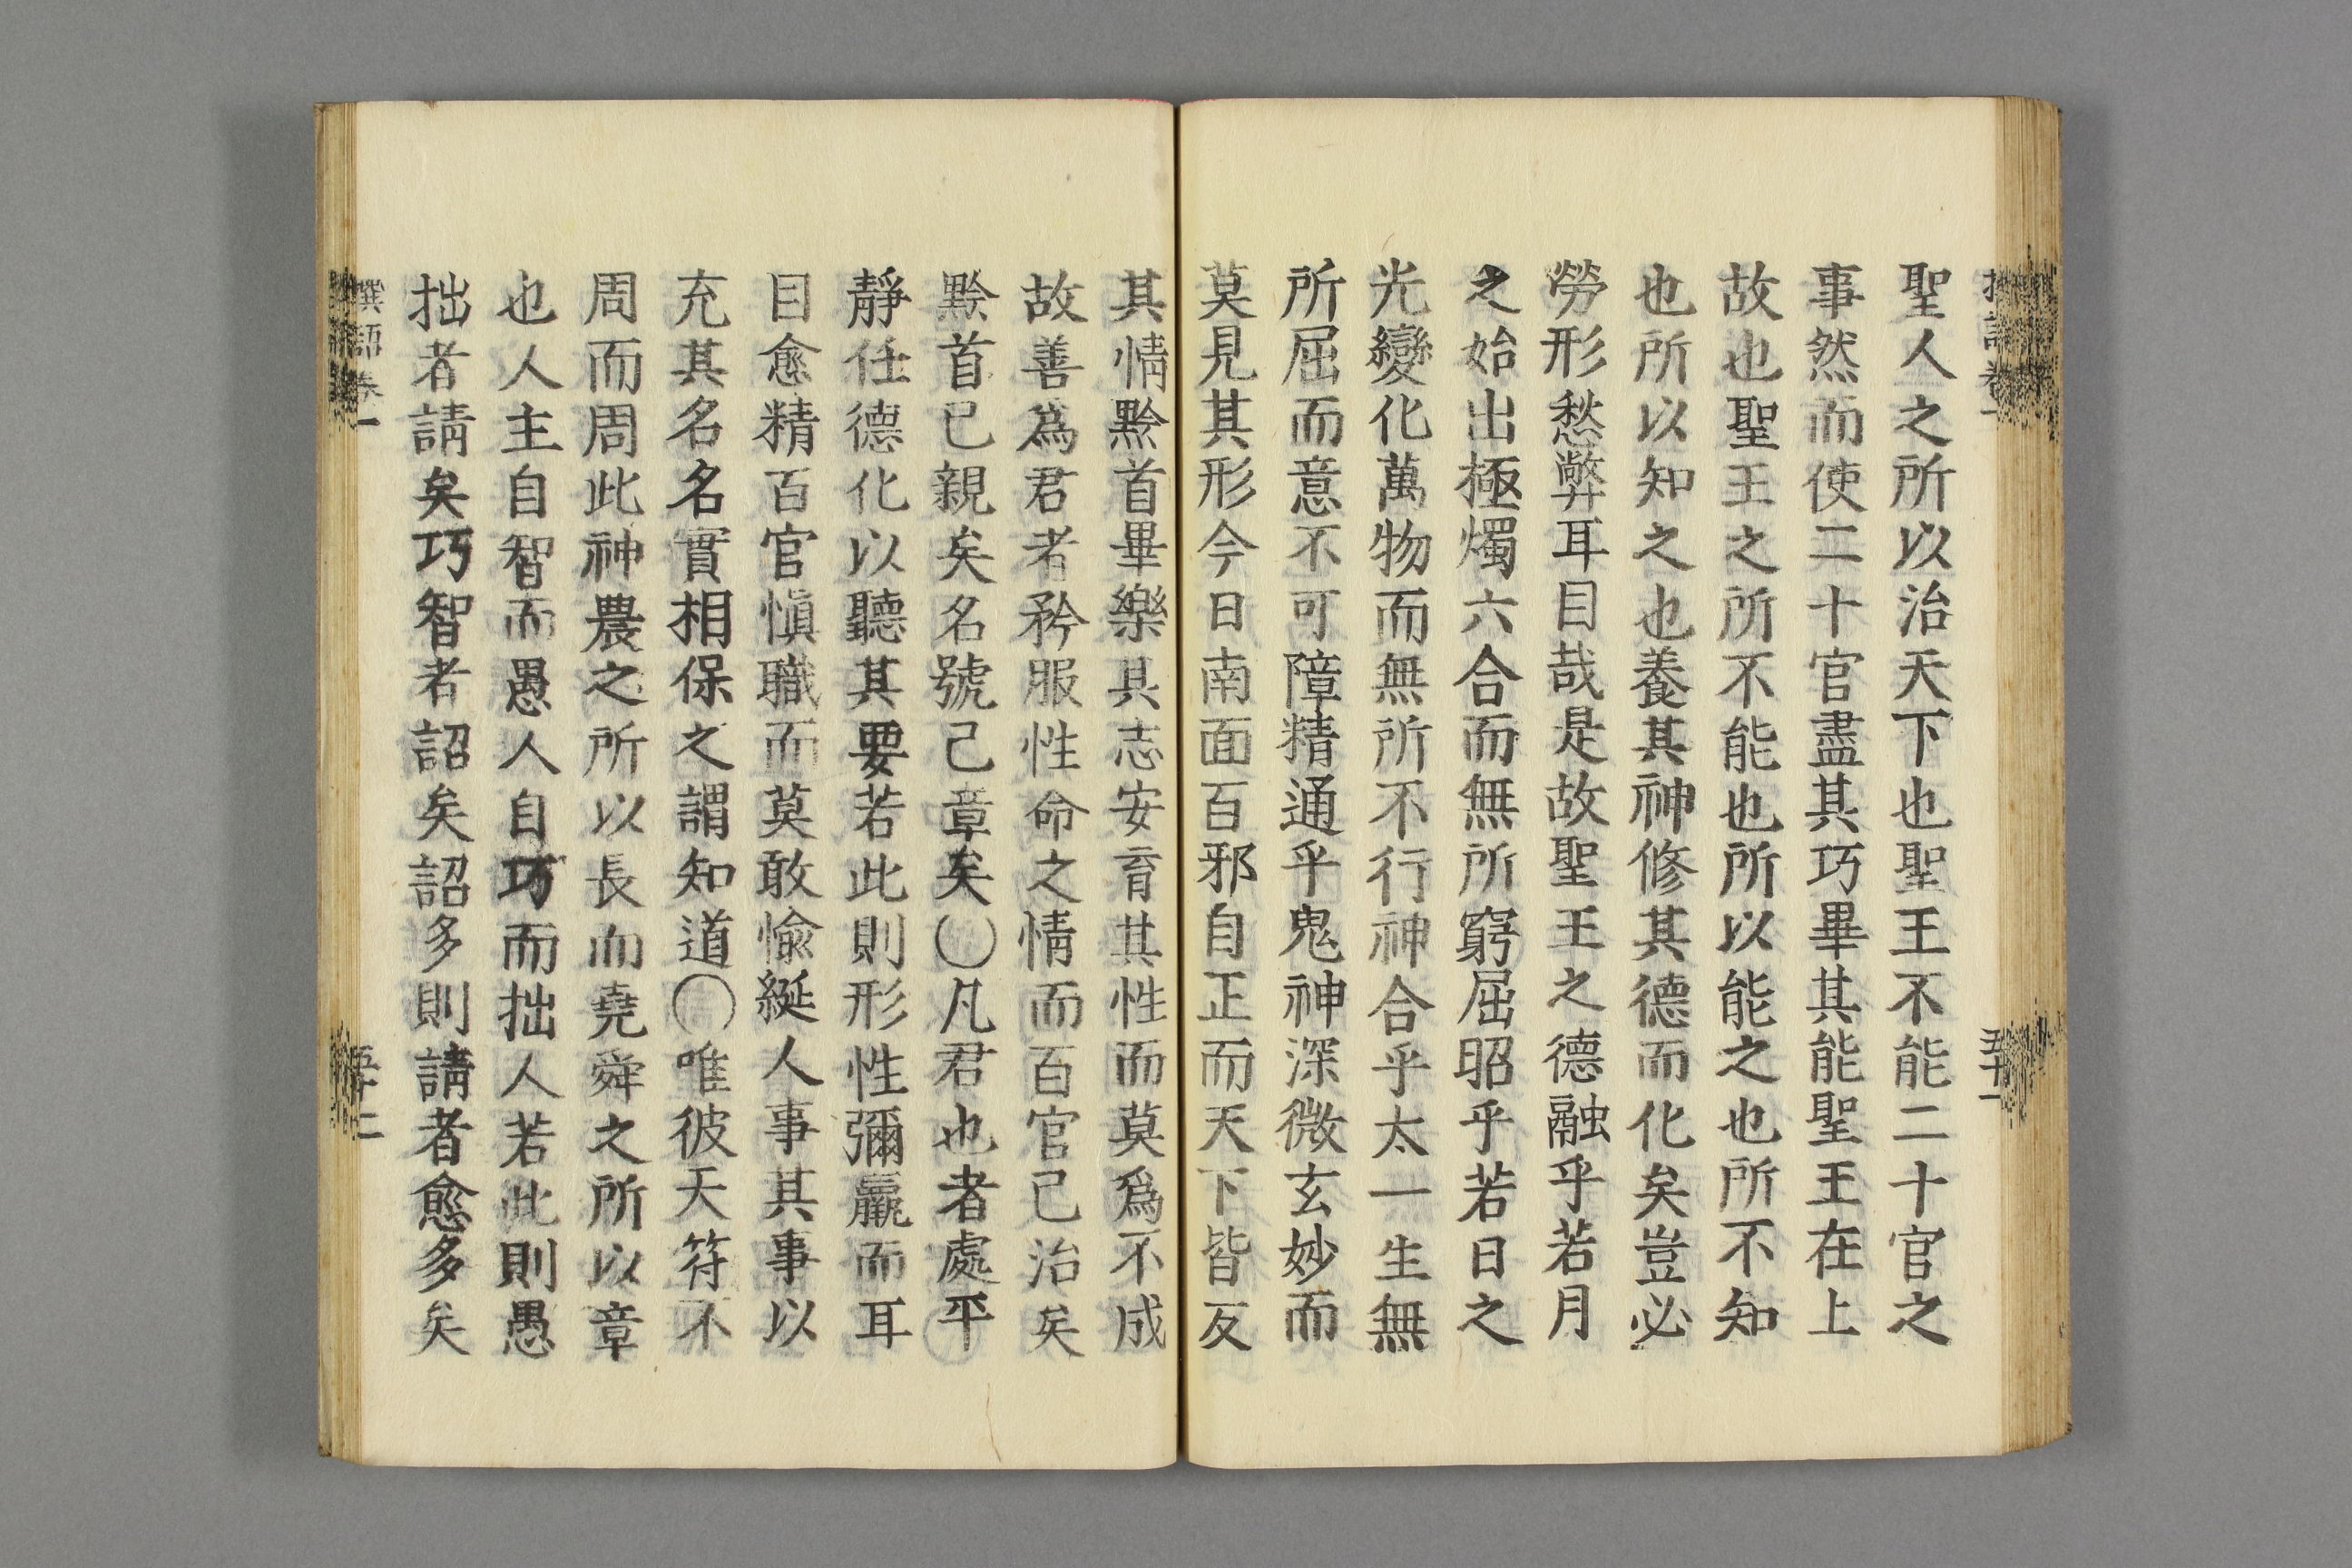 聖人之所以治天下也聖王不能二十官之
事然而使二十官盡其巧畢其能聖王在上
故也聖王之所不能也所以能之也所不知
也所以知之也養其神修其德而化矣豈必
勞形愁弊耳目哉是故聖王之德融乎若月
之始出極燭六合而無所窮屈昭乎若日之
光變化萬物而無所不行神合乎太一生無
所屈而意不可障精通乎鬼神深微玄妙而
莫見其形今日南面百邪自正而天下皆反
其情黔首畢樂其志安育其性而莫爲不成
故善爲君者矜服性命之情而百官已治矣
黔首已親矣名號已章矣○凡君也者處平
靜任德化以聽其要若此則形性彌羸而耳
目愈精百官愼職而莫敢愉綖人事其事以
充其名名實相保之謂知道○唯彼天符不
周而周此神農之所以長而堯舜之所以章
也人主自智而愚人自巧而拙人若此則愚
拙者請矣巧智者詔矣詔多則請者愈多矣
撰語卷一
五十二